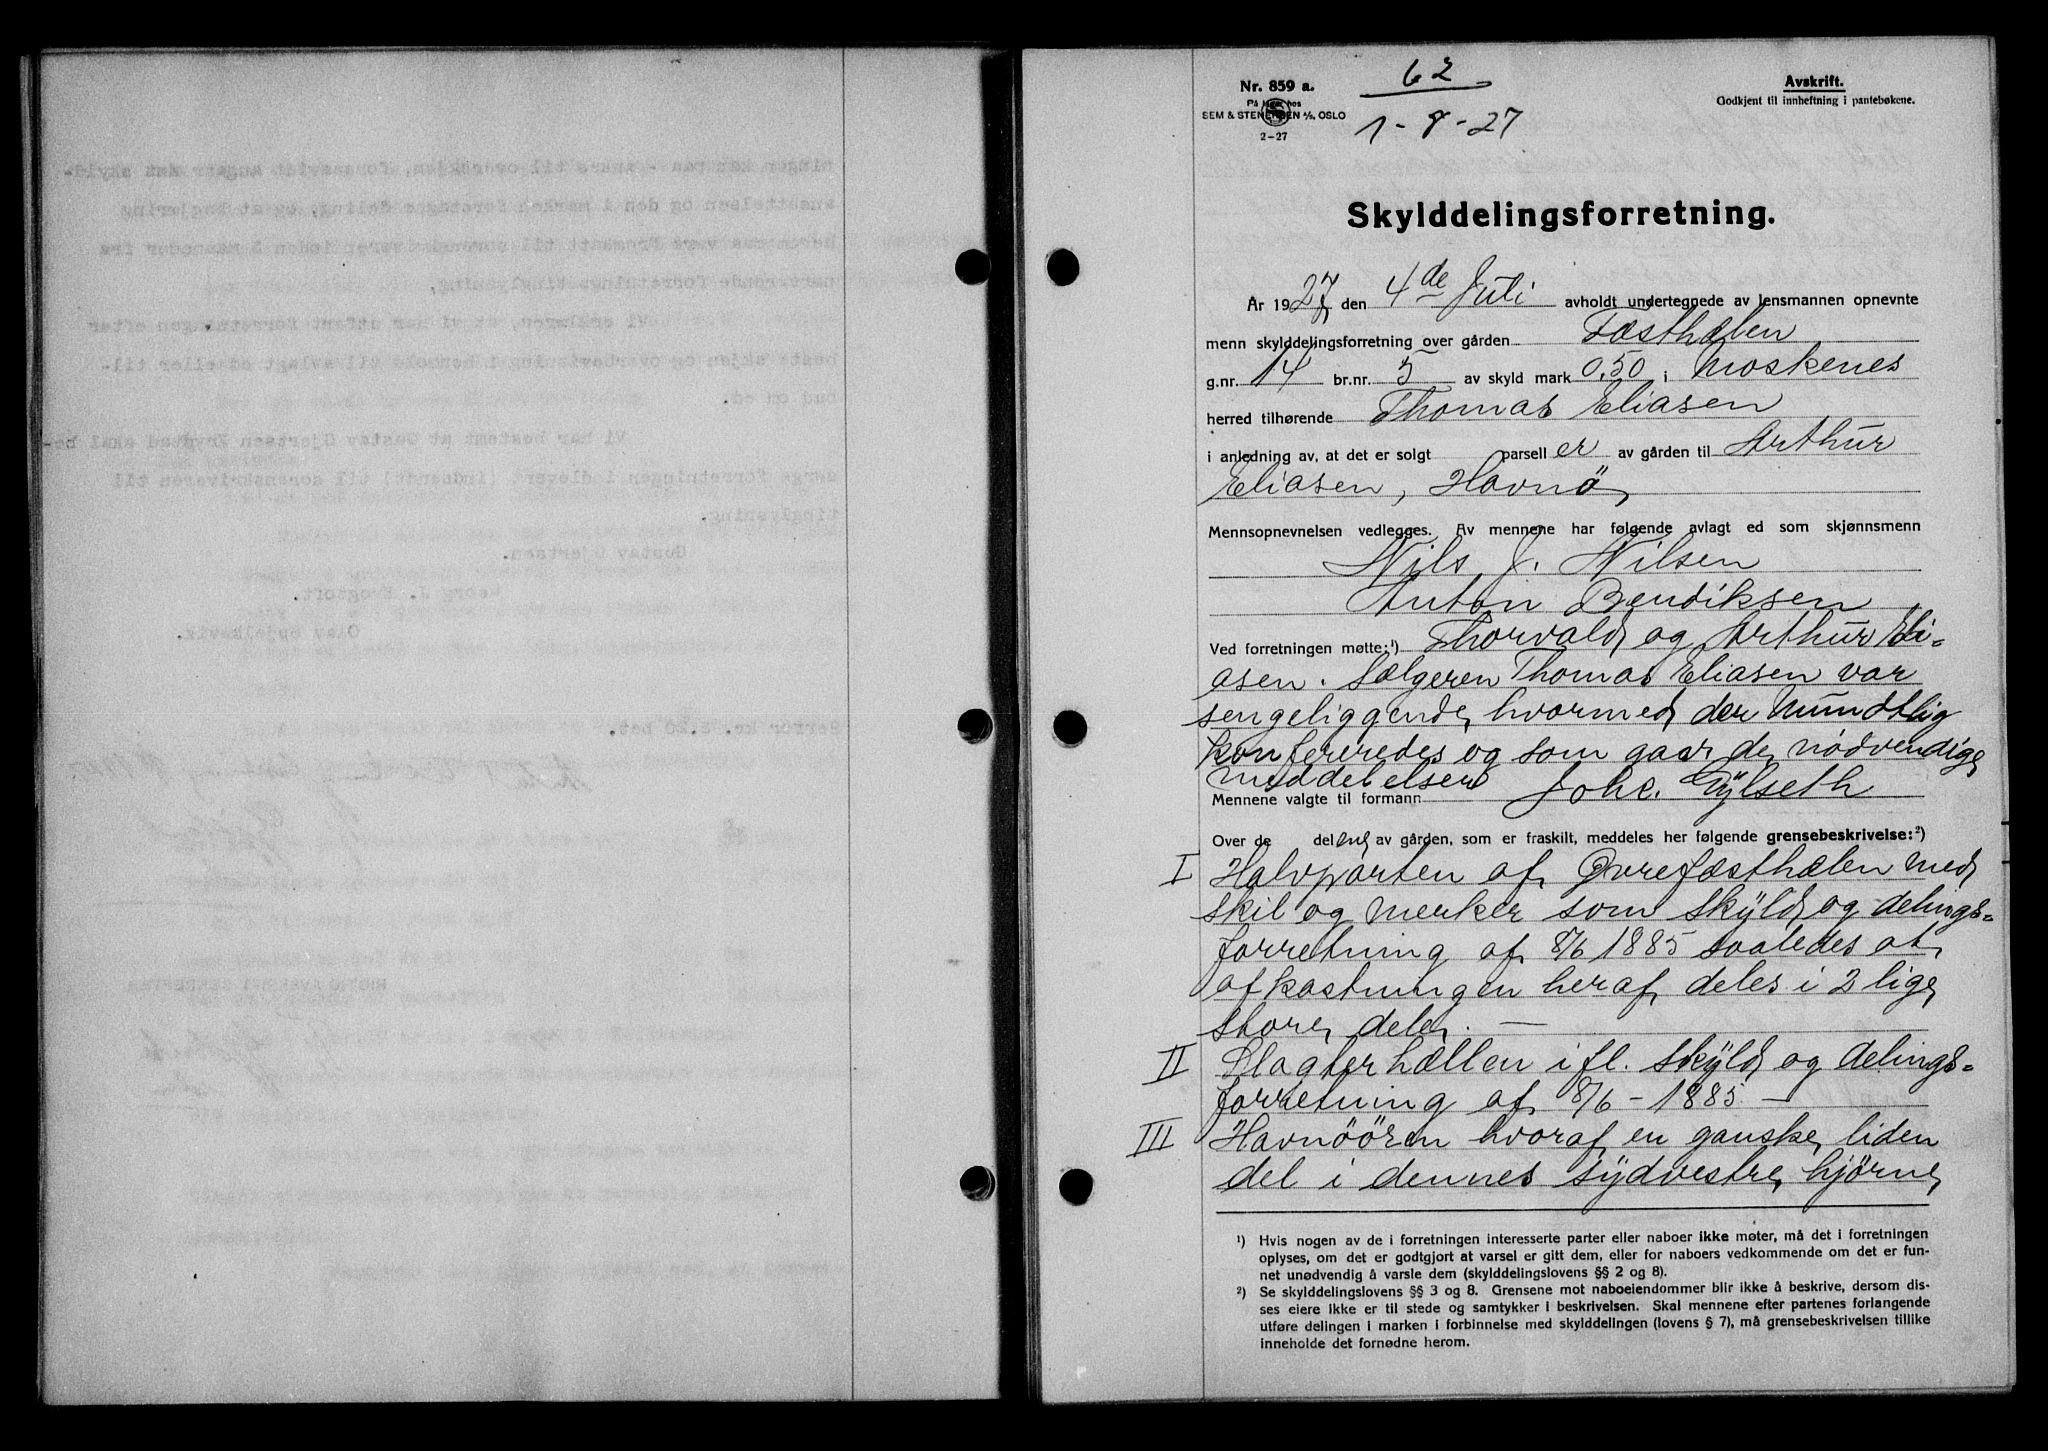 62
Nr. 859 a.
På lager hos
SEM & STENERSEN A/S, OSLO
2-27
1-8-27
Avskrift.
Godkjent til innheftning i pantebøkene.
Skylddelingsforretning.
År 1927, den 4de Juli avholdt undertegnede av lensmannen opnevnte
menn skylddelingsforretning over gården Fæsthælen
g.nr. 14 br.nr. 5 av skyld mark 0,50 i Moskenes
herred tilhørende Thomas Eliasen
i anledning av, at det er solgt parsell er av gården til Arthur
Eliasen, Havnø,
Mennsopnevnelsen vedlegges. Av mennene har følgende avlagt ed som skjønnsmenn
Nils J. Nilsen
Anton Bendiksen
Ved forretningen møtte:¹) Thorvald og Arthur Eli-
asen. Sælgeren Thomas Eliasen var
sengeliggende, hvormed der mundtlig
konfereredes og som gaar de nødvendige
meddelelser
Mennene valgte til formann Joh. Gylseth
Over de del ene av gården, som er fraskilt, meddeles her følgende grensebeskrivelse:²)
I Halvparten af Øvrefæsthælen med
skil og merker som skyld og delings-
forretning af 8/6 1885 saaledes at
afkastningen heraf deles i 2 lige
store dele. —
II Slagterhællen ifl. skyld og delings-
forretning af 8/6 - 1885 —
III Havnøören hvoraf en ganske liden
del i dennes sydvestre hjørne
¹) Hvis nogen av de i forretningen interesserte parter eller naboer ikke møter, må det i forretningen
oplyses, om det er godtgjort at varsel er gitt dem, eller for naboers vedkommende om det er fun-
net unødvendig å varsle dem (skylddelingslovens §§ 2 og 8).
²) Se skylddelingslovens §§ 3 og 8. Grensene mot naboeiendommer blir ikke å beskrive, dersom dis-
ses eiere ikke er til stede og samtykker i beskrivelsen. Skal mennene efter partenes forlangende
utføre delingen i marken i forbinnelse med skylddelingen (lovens § 7), må grensebeskrivelsen tillike
inneholde det fornødne herom.